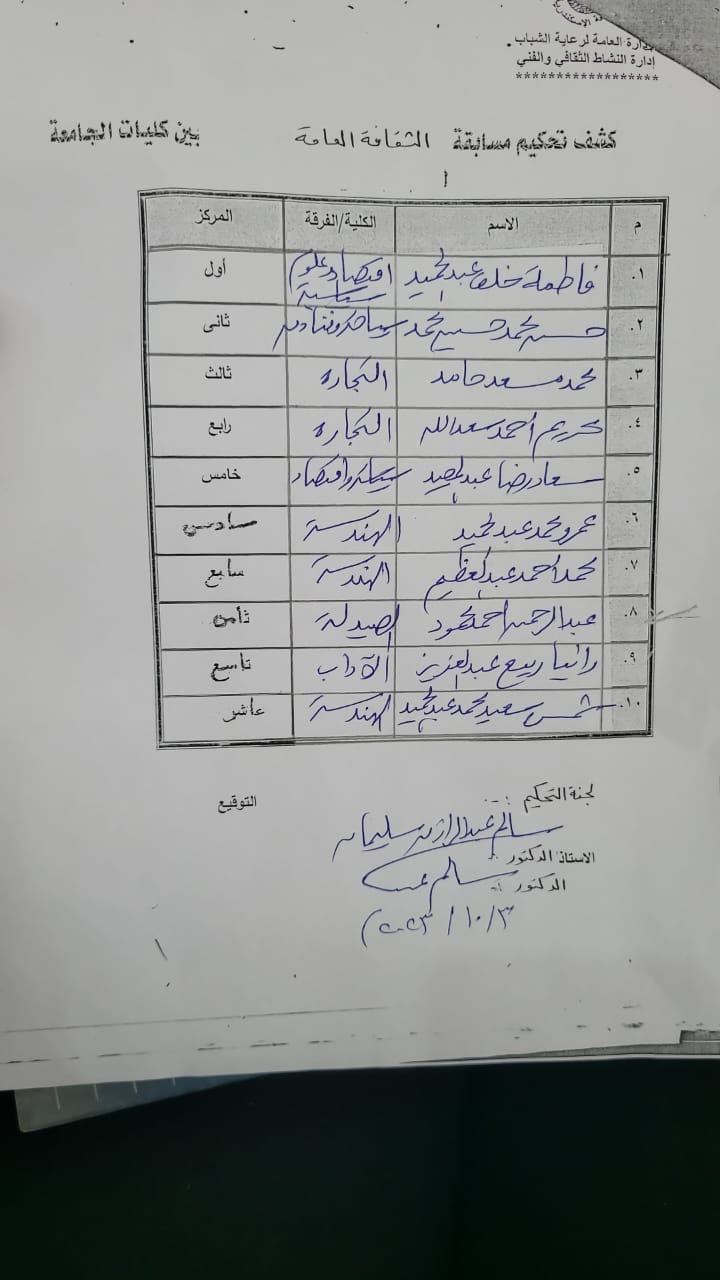 الإدارة العامة لرعاية الشباب
إدارة النشاط الثقافي والفني
******************
كشف تحكيم مسابقة الثقافة العامة بين كليات الجامعة
م الاسم الكلية/الفرقة المركز
١. فاطمة خلف عبد الحميد اقتصاد وعلوم سياسية أول
٢. حسن محمد حسين محمد ثانى
٣. محمد مسعد حامد التجاره ثالث
٤. كريم أحمد سعد الله التجاره رابع
٥. سعاد رضا خامس
٦. عمرو محمد عبد الحميد الهندسة سادس
٧. محمد أحمد عبد العظيم الهندسة سابع
٨. عبد الرحمن احمد محمود الصيدلة ثامن
٩. رانيا ربيع عبد العزيز الآداب تاسع
١٠. شمس سعيد محمد عبد الحميد الهندسة عاشر
لجنة التحكيم :- التوقيع
سالم عبد الرازق سليمان
الاستاذ الدكتور :-
الدكتور :- سالم
٢٠٢٣/١٠/٣